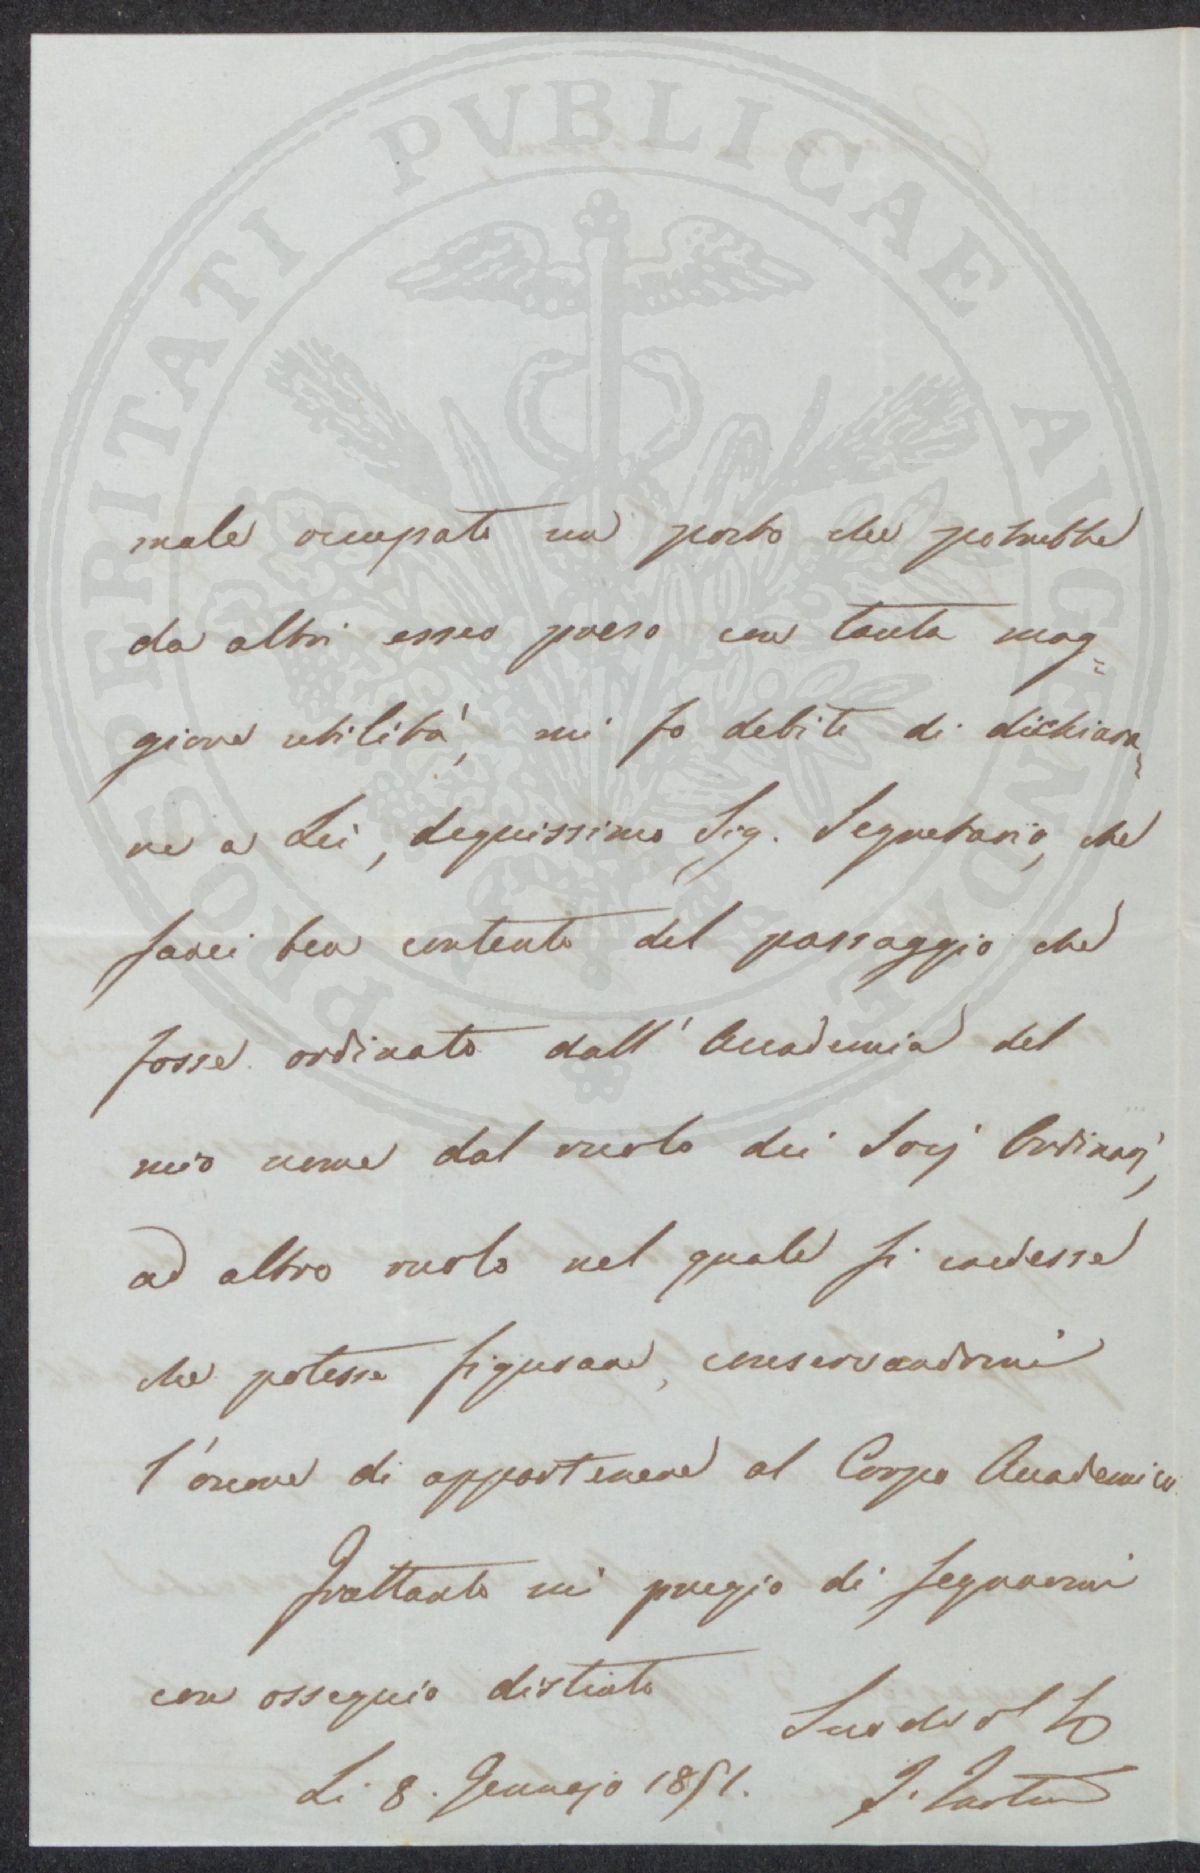 PROSPERITATI PVBLICAE AVGENDAE
male occupato un posto che potrebbe
da altri esser preso con tanta mag=
giore utilità, mi fo debito di dichiara=
re a Lei, degnissimo Sig. Segretario, che
sarei ben contento del passaggio che
fosse ordinato dall' Accademia del
mio nome dal ruolo dei Socj Ordinarj,
ad altro ruolo nel quale si credesse
che potesse figurare, conservandomi
l'onore di appartenere al Corpo Accademico.
Frattanto mi pregio di segnarmi
con ossequio distinto
Li 8. Gennajo 1851.